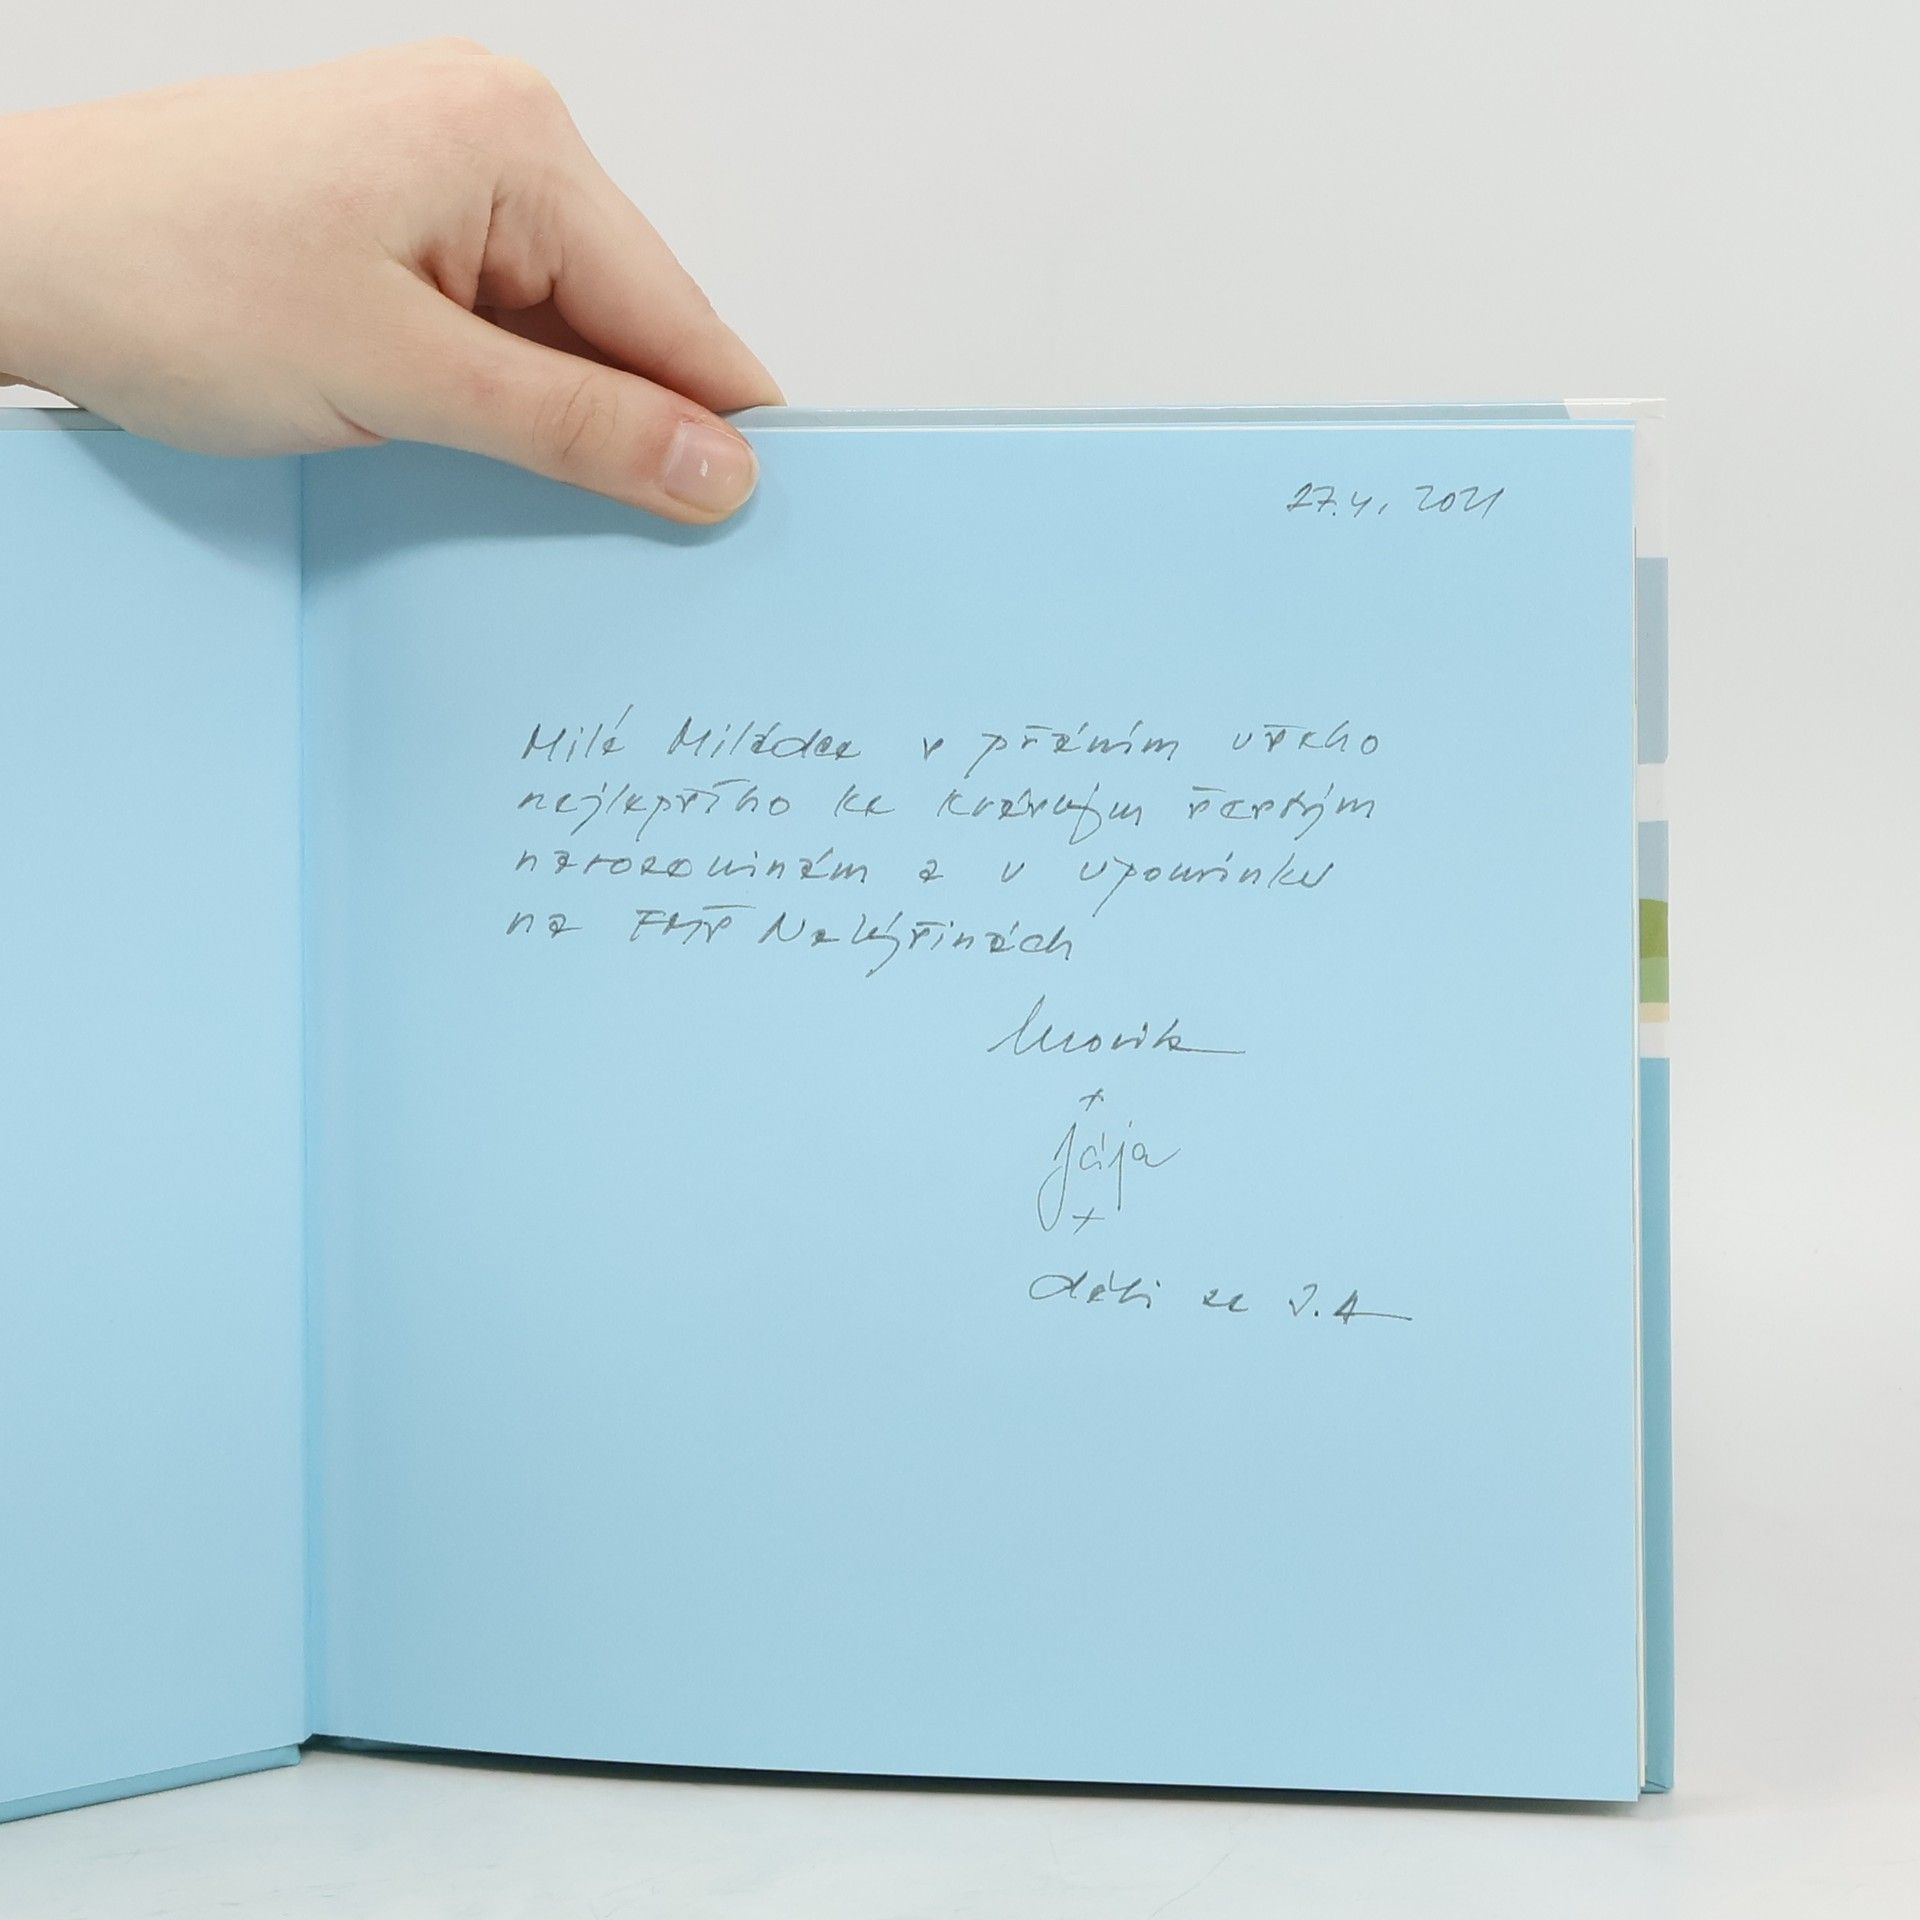 27.4. 2021
Milé Miládce s přáním všeho
nejlepšího ke krásným šestým
narozeninám a v upomínku
na FMŠ Nalýšinách
+
Jája
+
děti ze 2.A